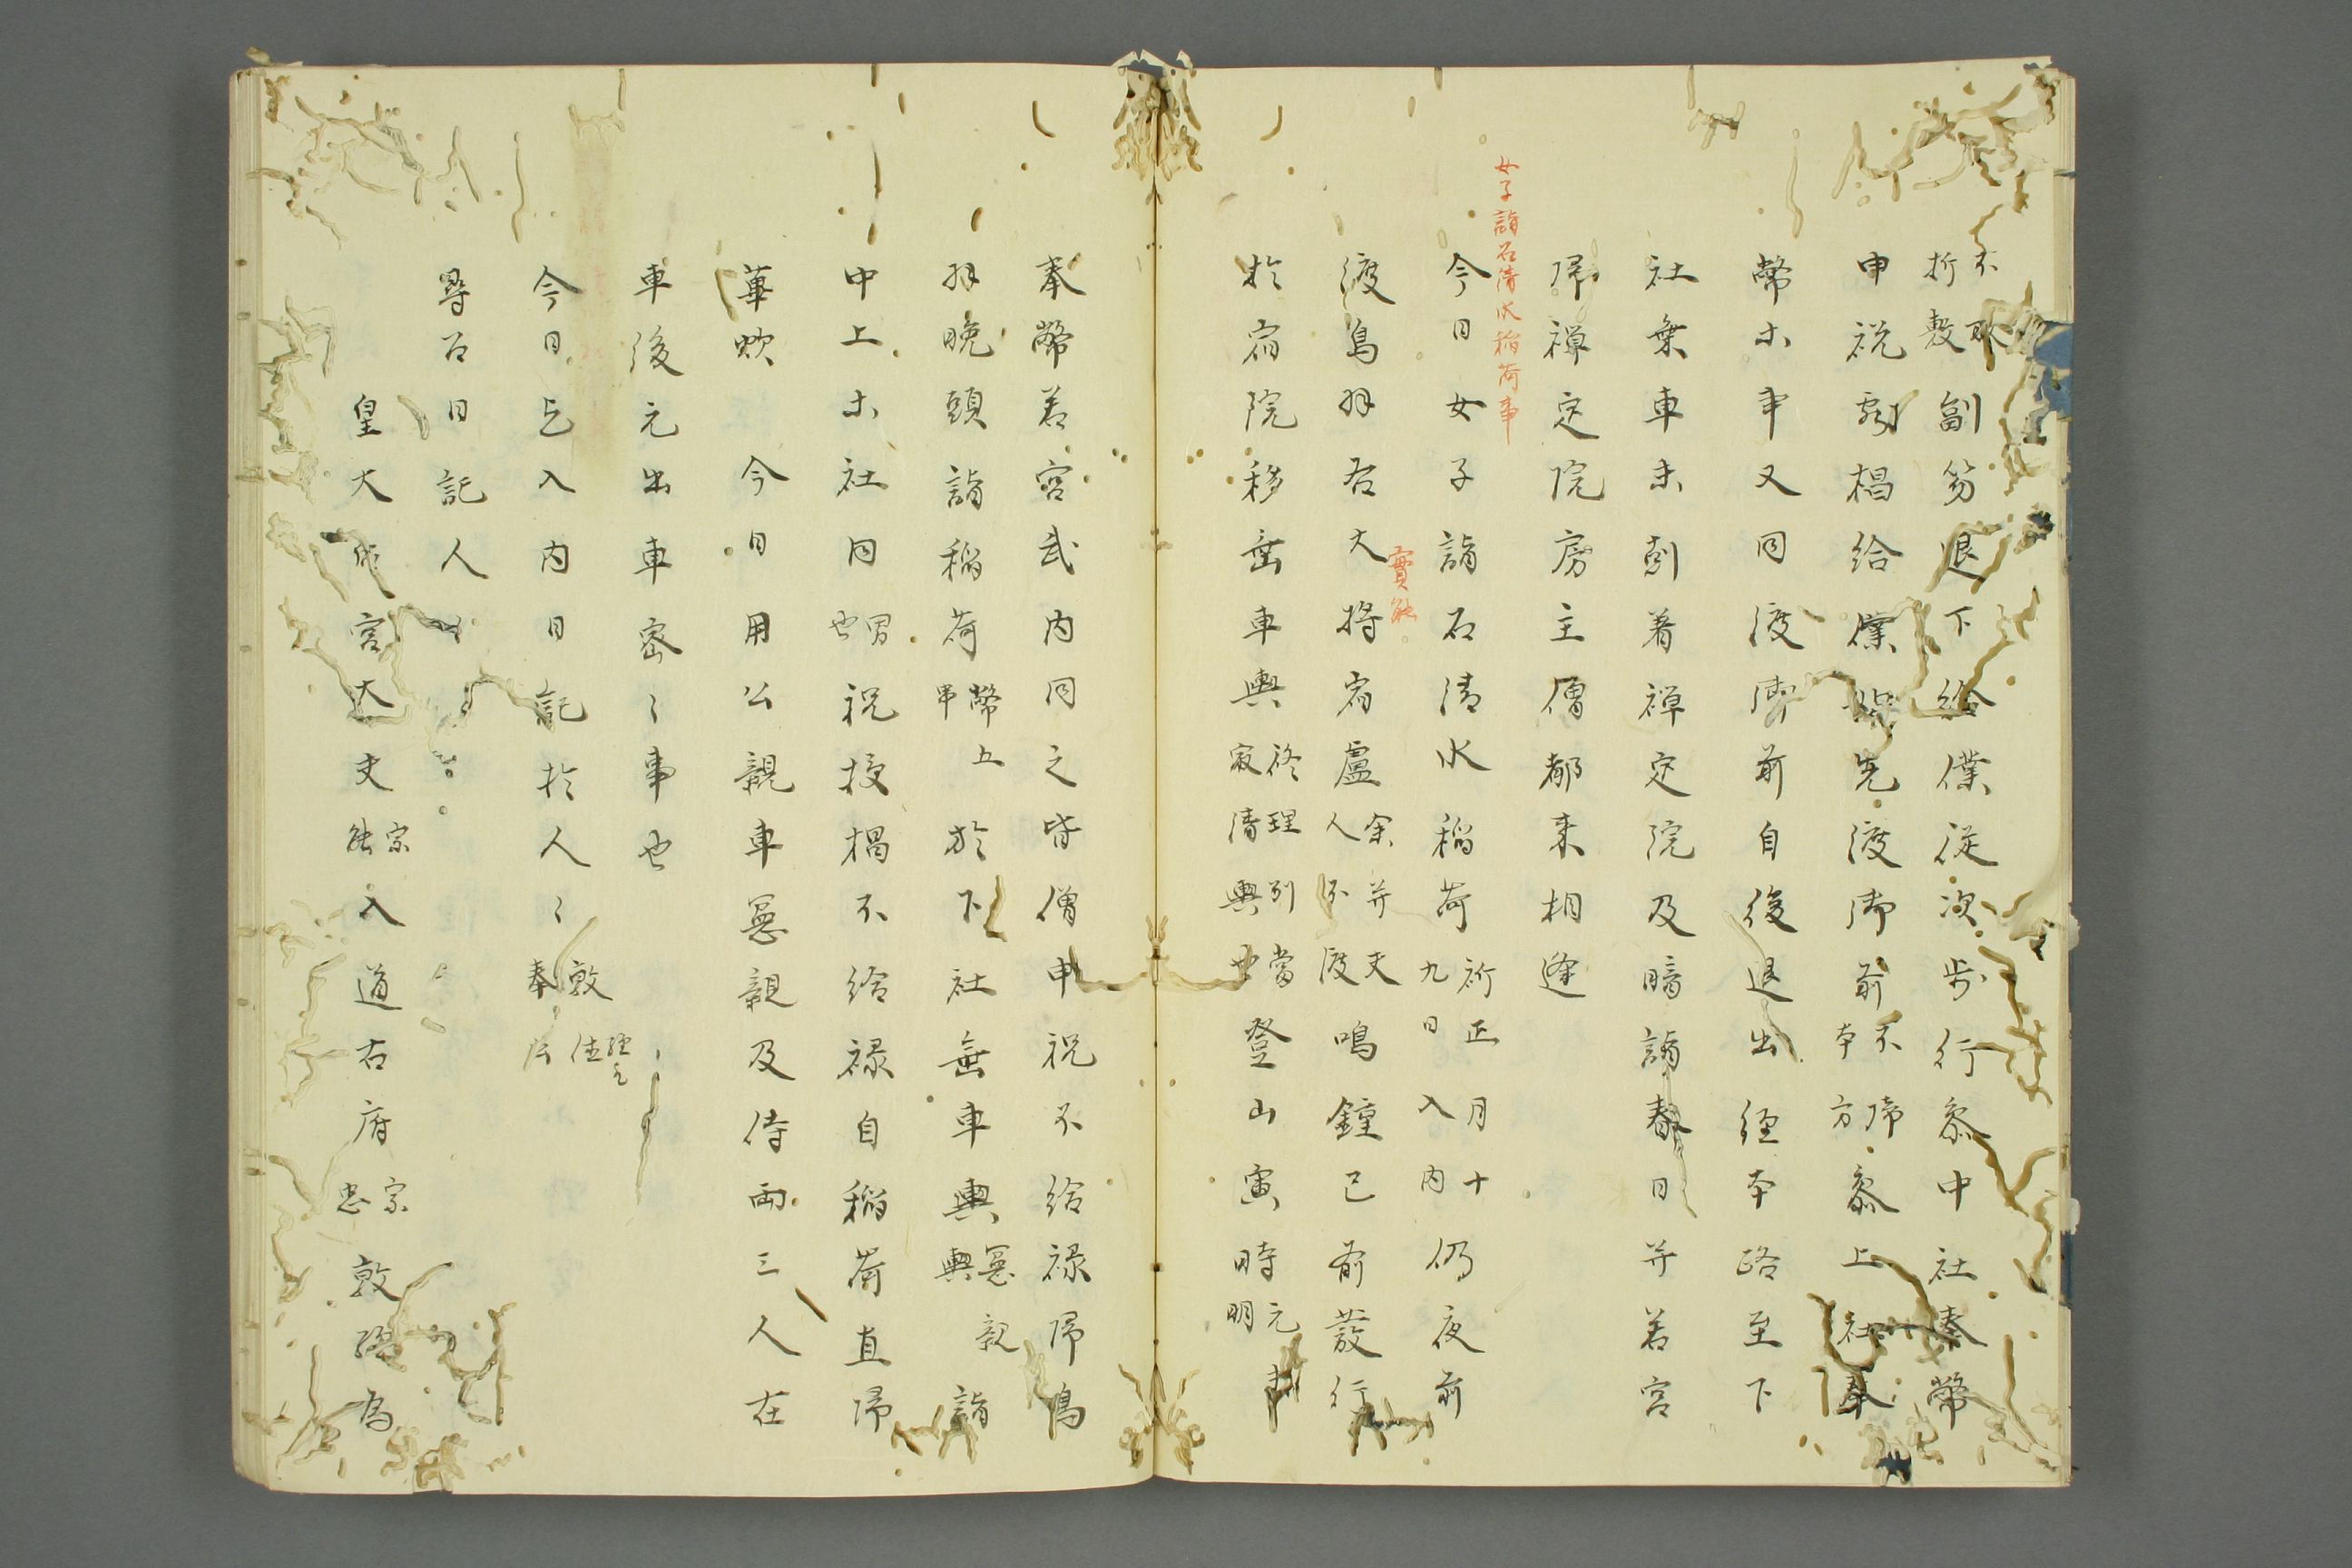 不取
折敷副笏退下給僕従次歩行参中社奉幣
申祝了授椙給僕如先渡御前不帰
本方参上社奉
幣等事又同渡御前自後退出経本路至下
社乗車未剋着禅定院及暗詣春日并若宮
帰禅定院房主僧都来相逢
女子詣石清水稲荷事
今日女子詣石清水稲荷祈正月十
九日入内仍夜前
渡鳥羽右大将宿廬余并夫
人不渡鳴鐘已前発行
實能
於宿院移乗車輿修理別当
寂清輿也登山寅時元
明
奉幣若宮武内同之皆僧申祝不給禄帰鳥
羽晩頭詣稲荷幣五
串於下社乗車輿冤親
輿詣
中上等社同男
也祝授椙不給禄自稲荷直帰
華欤 今日用公親車冤親及侍両三人在
車後元出車密々事也
今日乞入内日記於人々敦任
奉法
尋百日記人
皇大后宮大夫宗
能入道右府宗
忠敦
為